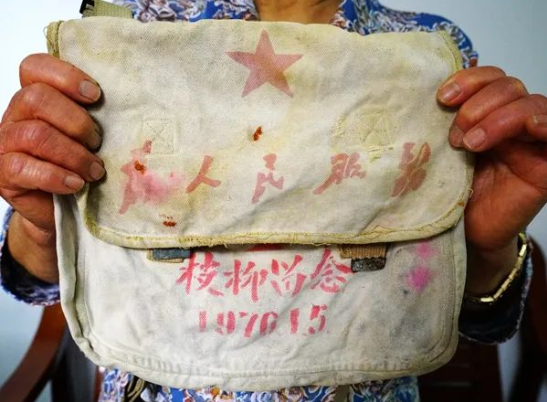 为人民服务
枝柳留念
1970 1.5